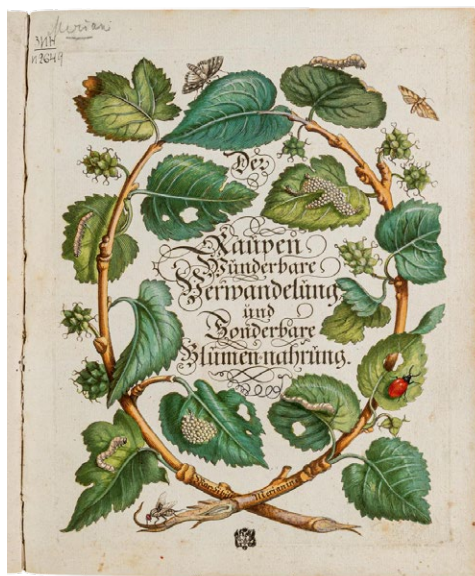 Merian
Der
Raupen
Wunderbare
Verwandelung
und
Sonderbare
Blumen-nahrung.